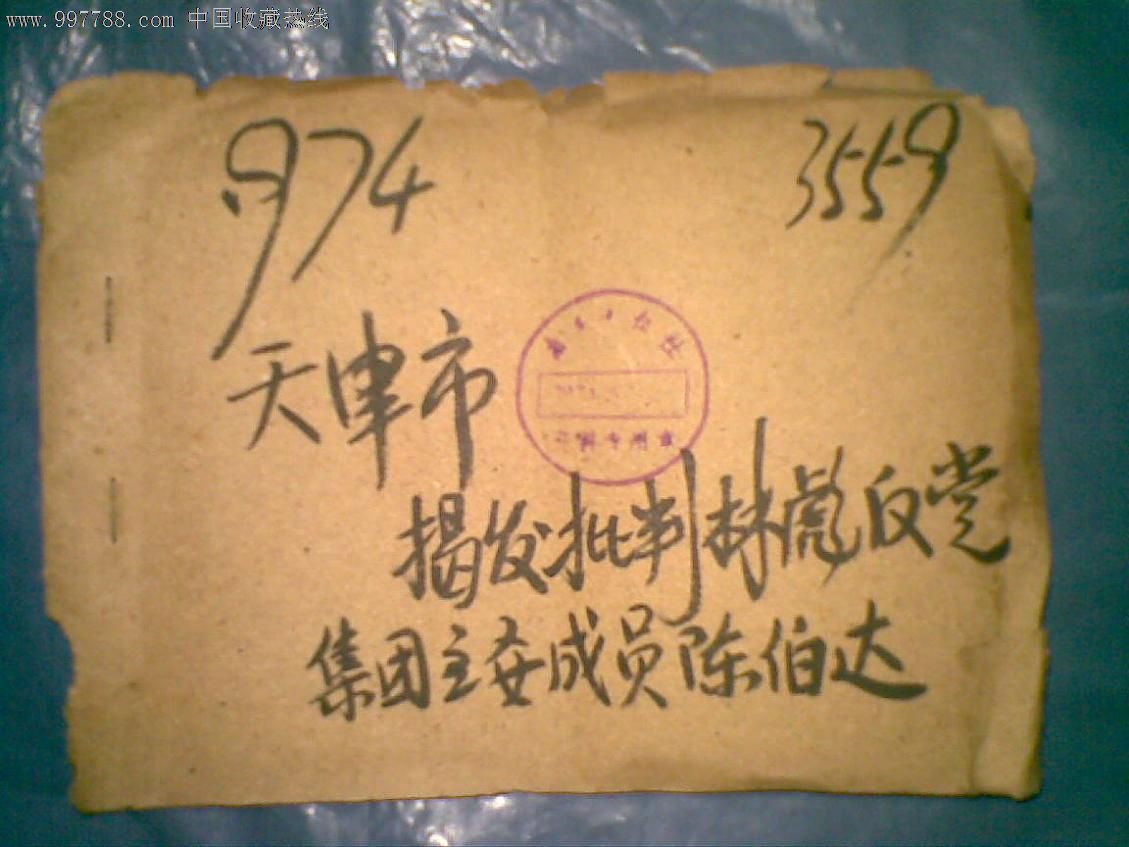 www.997788.com 中国收藏热线
974
3559
天津市
日报社
资料专用章
揭发批判林彪反党
集团主要成员陈伯达